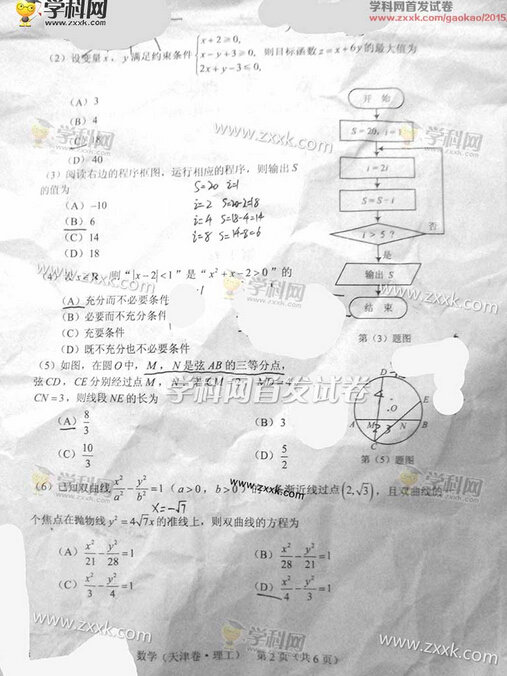 学科网
www.zxxk.com
学科网首发试卷
www.zxxk.com/gaokao/2015
(2) 设变量 x, y 满足约束条件 { x+2≥0, x-y+3≥0, 2x+y-3≤0, 则目标函数 z=x+6y 的最大值为
(A) 3
(B) 4
(D) 40
学科网
www.zxxk.com
(3) 阅读右边的程序框图,运行相应的程序,则输出 S
的值为
S=20 i=1
i=2 S=20-2=18
i=4 S=18-4=14
i=8 S=14-8=6
(A) -10
(B) 6
(C) 14
(D) 18
开始
S=20, i=1
i=2i
S=S-i
i>5?
否
是
输出 S
结束
第(3)题图
学科网
www.zxxk.com
则“|x-2|<1”是“x²+x-2>0”的
(A) 充分而不必要条件
(B) 必要而不充分条件
(C) 充要条件
(D) 既不充分也不必要条件
(5) 如图,在圆 O 中,M, N 是弦 AB 的三等分点,
弦 CD, CE 分别经过点 M,
CN=3,则线段 NE 的长为
学科网首发试卷
(A) 8/3
(B) 3
(C) 10/3
(D) 5/2
D
E
O
A
M
N
B
C
第(5)题图
学科网
www.zxxk.com
(6) 已知双曲线 x²/a² - y²/b² =1 (a>0, b>0) 渐近线过点 (2,√3),且双曲线的
x=-√7
个焦点在抛物线 y²=4√7x 的准线上,则双曲线的方程为
(A) x²/21 - y²/28 =1
(B) x²/28 - y²/21 =1
(C) x²/3 - y²/4 =1
(D) x²/4 - y²/3 =1
学科网
www.zxxk.com
数学(天津卷·理工) 第2页(共6页)